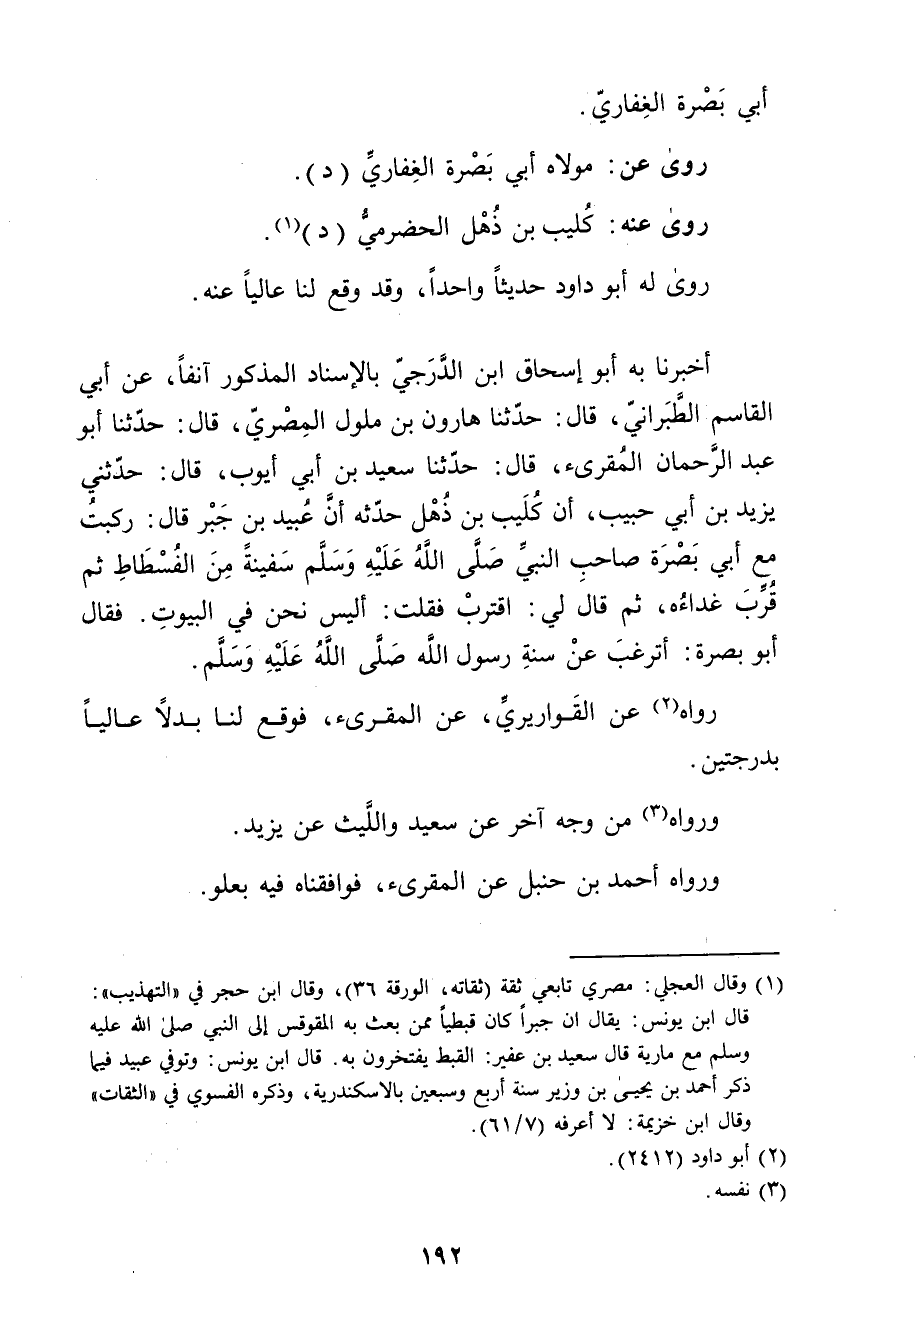 أبي بَصْرة الغِفاريّ.
روىٰ عن: مولاه أبي بَصْرة الغِفاريِّ (د).
روىٰ عنه: كُليب بن ذُهْل الحضرميُّ (د)(١).
روىٰ له أبو داود حديثاً واحداً، وقد وقع لنا عالياً عنه.
أخبرنا به أبو إسحاق ابن الدَّرَجيّ بالإسناد المذكور آنفاً، عن أبي
القاسم الطَّبَرانيّ، قال: حدّثنا هارون بن ملول المِصْريّ، قال: حدّثنا أبو
عبد الرَّحمان المُقرىء، قال: حدّثنا سعيد بن أبي أيوب، قال: حدّثني
يزيد بن أبي حبيب، أن كُلَيب بن ذُهْل حدّثه أنَّ عُبيد بن جَبْر قال: ركبتُ
مع أبي بَصْرَة صاحبِ النبيِّ صَلَّى اللَّهُ عَلَيْهِ وَسَلَّم سَفينةً مِنَ الفُسْطَاطِ ثم
قُرِّبَ غداءُه، ثم قال لي: اقتربْ فقلت: أليس نحن في البيوتِ. فقال
أبو بصرة: أترغبَ عنْ سنةِ رسول اللَّه صَلَّى اللَّهُ عَلَيْهِ وَسَلَّم.
رواه(٢) عن القَواريريِّ، عن المقرىء، فوقع لنا بدلاً عالياً
بدرجتين.
ورواه(٣) من وجه آخر عن سعيد واللَّيث عن يزيد.
ورواه أحمد بن حنبل عن المقرىء، فوافقناه فيه بعلو.
(١) وقال العجلي: مصري تابعي ثقة (ثقاته، الورقة ٣٦)، وقال ابن حجر في «التهذيب»:
قال ابن يونس: يقال ان جبراً كان قبطياً ممن بعث به المقوقس إلى النبي صلىٰ الله عليه
وسلم مع مارية قال سعيد بن عفير: القبط يفتخرون به. قال ابن يونس: وتوفي عبيد فيما
ذكر أحمد بن يحيىٰ بن وزير سنة أربع وسبعين بالاسكندرية، وذكره الفسوي في «الثقات»
وقال ابن خزيمة: لا أعرفه (٦١/٧).
(٢) أبو داود (٢٤١٢).
(٣) نفسه.
١٩٢